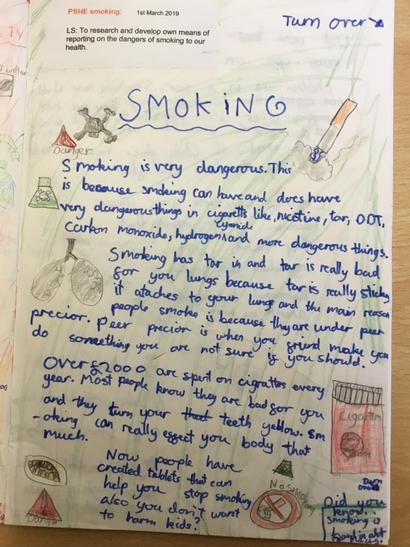 PSHE smoking: 1st March 2019
LS: To research and develop own means of
reporting on the dangers of smoking to our
health.
Turn over
SMOKiNG
Danger
Smoking is very dangerous. This
is because smoking can have and does have
very dangerous things in cigaretts like, nicotine, tar, DDT,
cyanide
carbon monoxide, hydrogen and more dangerous things.
Smoking has tar in and tar is really bad
for you lungs because tar is really sticky
it ataches to your lungs and the main reason
people smoke is because they are under peer
precior. Peer precior is when you friend make you
do something you are not sure if you should.
Over £2000 are spent on cigrattes every
year. Most people know they are bad for you
and they turn your teeth yellow. Sm
-oking can really effect you body that
much.
Cigarettes
Now people have
created tablets that can
help you stop smoking
also you don't want
to harm kids?
No Smoking
Danger
Turn
over
Did you
know..
smoking is